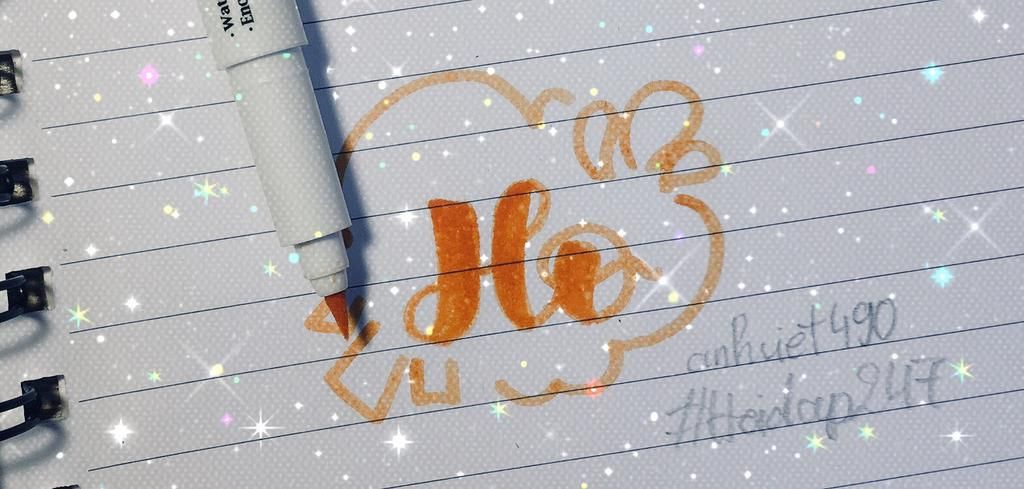 · Wat
· Enc
Ho
anhviet490
#Hoidap247